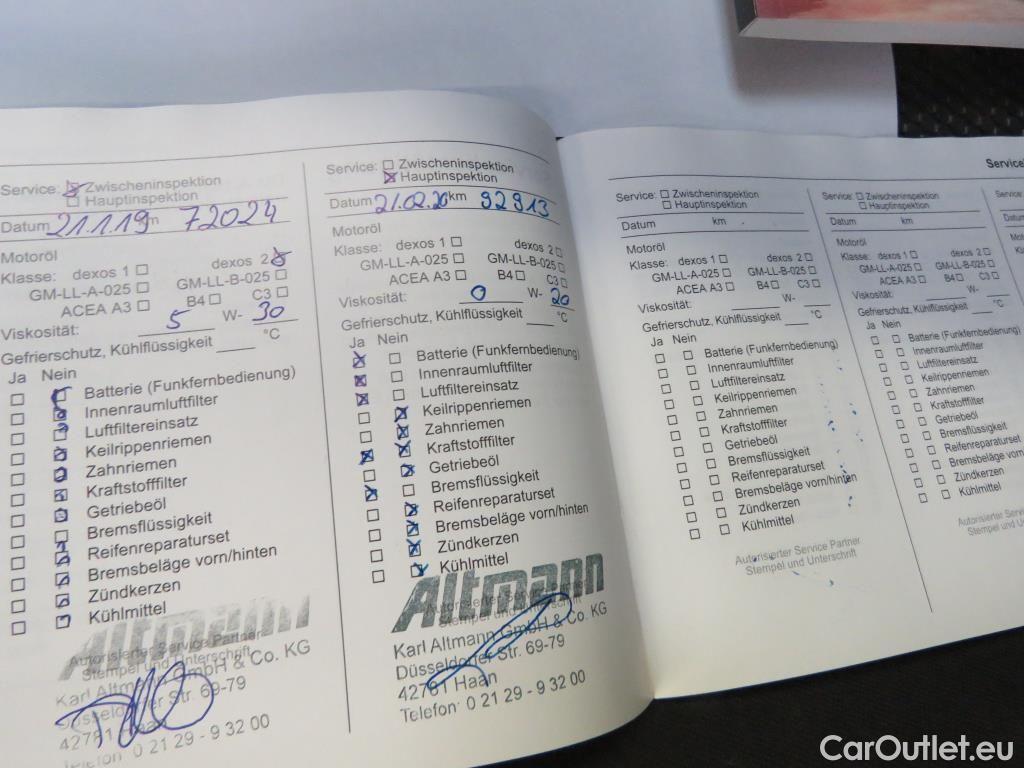 Service: Zwischeninspektion
Hauptinspektion
Datum 21.1.19 km 72024
Motoröl
Klasse: dexos 1 dexos 2
GM-LL-A-025 GM-LL-B-025
ACEA A3 B4 C3
Viskosität: 5 W- 30
Gefrierschutz, Kühlflüssigkeit °C
Ja Nein
Batterie (Funkfernbedienung)
Innenraumluftfilter
Luftfiltereinsatz
Keilrippenriemen
Zahnriemen
Kraftstofffilter
Getriebeöl
Bremsflüssigkeit
Reifenreparaturset
Bremsbeläge vorn/hinten
Zündkerzen
Kühlmittel
Altmann
Autorisierter Service Partner
Stempel und Unterschrift
Karl Altmann GmbH & Co. KG
Düsseldorfer Str. 69-79
42781 Haan
Telefon: 0 21 29 - 9 32 00
Service: Zwischeninspektion
Hauptinspektion
Datum 21.02.20 km 92913
Motoröl
Klasse: dexos 1 dexos 2
GM-LL-A-025 GM-LL-B-025
ACEA A3 B4 C3
Viskosität: 0 W- 20
Gefrierschutz, Kühlflüssigkeit °C
Ja Nein
Batterie (Funkfernbedienung)
Innenraumluftfilter
Luftfiltereinsatz
Keilrippenriemen
Zahnriemen
Kraftstofffilter
Getriebeöl
Bremsflüssigkeit
Reifenreparaturset
Bremsbeläge vorn/hinten
Zündkerzen
Kühlmittel
Altmann
Autorisierter Service Partner
Stempel und Unterschrift
Karl Altmann GmbH & Co. KG
Düsseldorfer Str. 69-79
42781 Haan
Telefon: 0 21 29 - 9 32 00
Service
Service: Zwischeninspektion
Hauptinspektion
Datum km
Motoröl
Klasse: dexos 1 dexos 2
GM-LL-A-025 GM-LL-B-025
ACEA A3 B4 C3
Viskosität: W-
Gefrierschutz, Kühlflüssigkeit °C
Ja Nein
Batterie (Funkfernbedienung)
Innenraumluftfilter
Luftfiltereinsatz
Keilrippenriemen
Zahnriemen
Kraftstofffilter
Getriebeöl
Bremsflüssigkeit
Reifenreparaturset
Bremsbeläge vorn/hinten
Zündkerzen
Kühlmittel
Autorisierter Service Partner
Stempel und Unterschrift
Service: Zwischeninspektion
Hauptinspektion
Datum km
Motoröl
Klasse: dexos 1 dexos 2
GM-LL-A-025 GM-LL-B-025
ACEA A3 B4 C3
Viskosität: W-
Gefrierschutz, Kühlflüssigkeit °C
Ja Nein
Batterie (Funkfernbedienung)
Innenraumluftfilter
Luftfiltereinsatz
Keilrippenriemen
Zahnriemen
Kraftstofffilter
Getriebeöl
Bremsflüssigkeit
Reifenreparaturset
Bremsbeläge vorn/hinten
Zündkerzen
Kühlmittel
Autorisierter Service
Stempel und
CarOutlet.eu